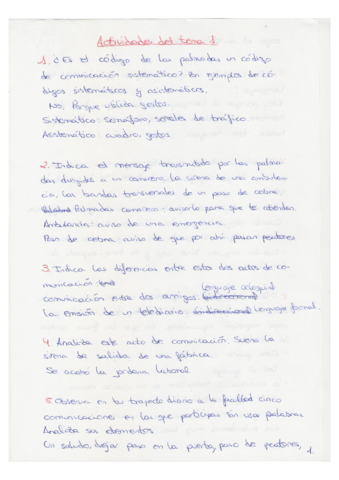 Actividades del tema 1
1. ¿Es el código de las palmadas un código
de comunicación sistemático? Pon ejemplos de có-
digos sistemáticos y asistemáticos.
No, Porque utiliza gestos.
Sistemático: semáforo, señales de tráfico
Asistemático: cuadro, gestos.
2. Indica el mensaje transmitido por las palma-
das dirigidas a un camarero, la sirena de una ambulan-
cia, las bandas transversales de un paso de cebra.
Palmadas camarero: avisarlo para que te atiendan.
Ambulancia: aviso de una emergencia.
Paso de cebra: aviso de que por ahí pasan peatones
3. Indica las diferencias entre estos dos actos de co-
municación
comunicación entre dos amigos: Lenguaje coloquial
la emisión de un telediario: Lenguaje formal.
4. Analiza este acto de comunicación: Suena la
sirena de salida de una fábrica.
Se acabó la jornada laboral
5. Observa en tu trayecto diario a la facultad cinco
comunicaciones en las que participas sin usar palabras.
Analiza sus elementos
Un saludo, dejar paso en la puerta, paso de peatones,
1.